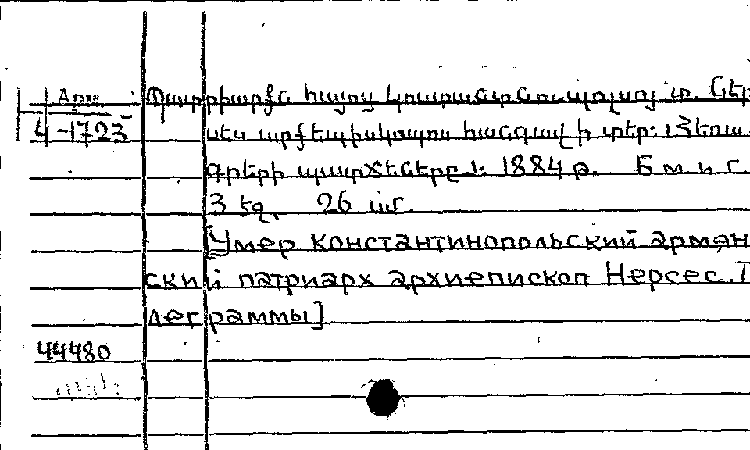 Арм
4-1723
Պատրիարքն հայոց Կոստանդնուպոլսոյ տ. Ներ
սես արքեպիսկոպոս հանգավ ի տէր: [Հեռա
գրերի պատճեններ]: 1884 թ. Б м и г.
3 եզ. 26 սմ.
[Умер константинопольский армян
ский патриарх архиепископ Нерсес. Т
леграммы]
44480